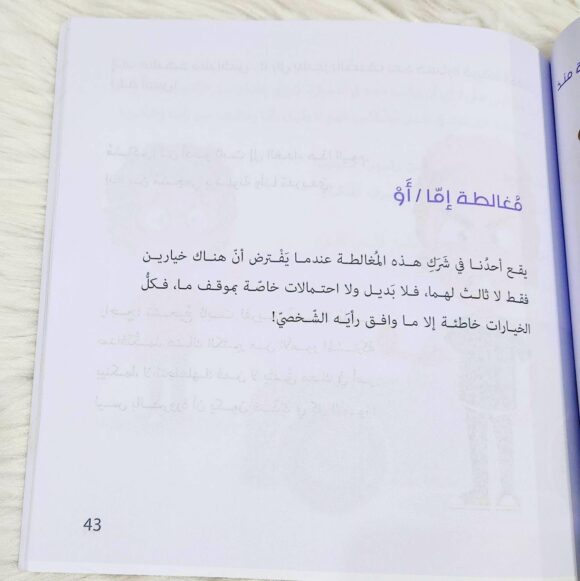 مُغالطة إمّا / أَوْ
يقع أحدُنا في شَرَكِ هذه المُغالطة عندما يَفْترض أنّ هناك خيارين
فقط لا ثالث لهما، فلا بَديل ولا احتمالات خاصّة بموقف ما، فكلُّ
الخيارات خاطئة إلا ما وافق رأيَه الشّخصيّ!
43